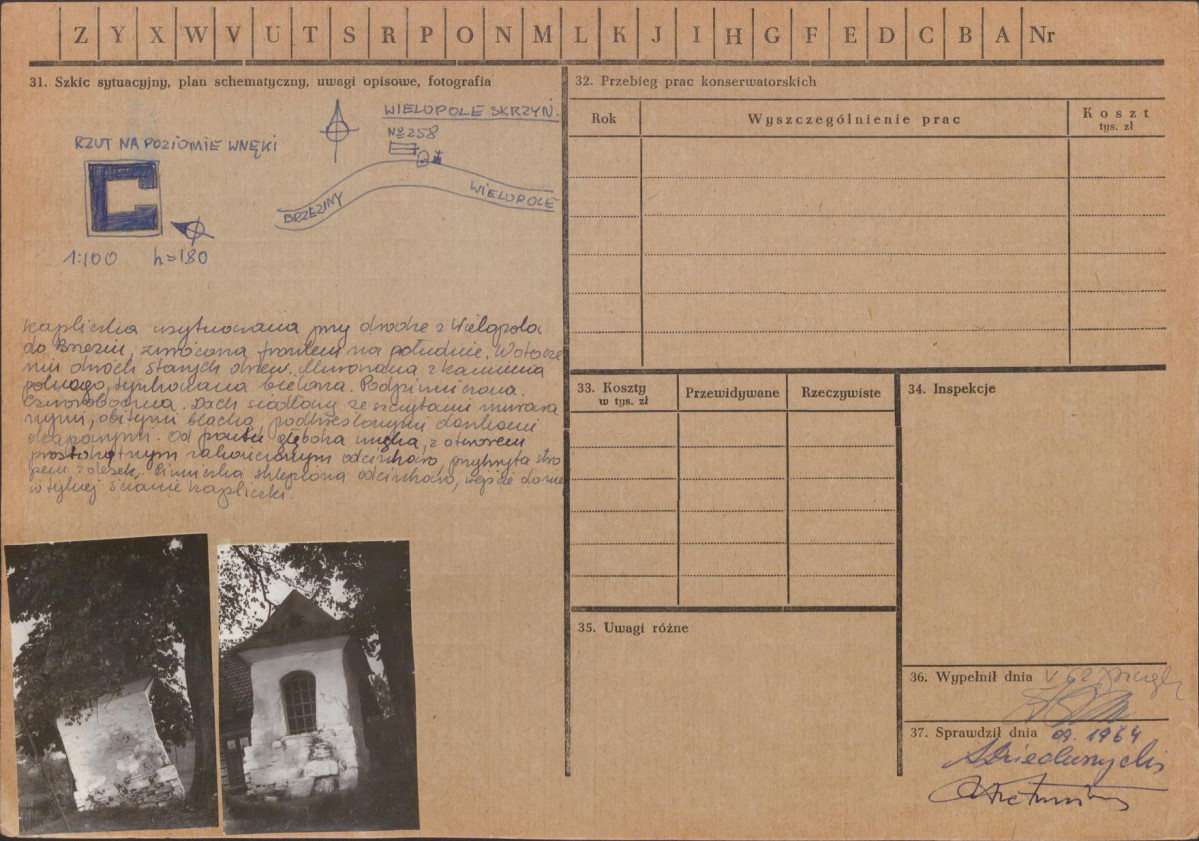 Z Y X W V U T S R P O N M L K J I H G F E D C B A Nr
31. Szkic sytuacyjny, plan schematyczny, uwagi opisowe, fotografia
WIELOPOLE SKRZYŃ.
No 258
RZUT NA POZIOMIE WNĘKI
BRZEZINY
WIELOPOLE
1:100 h=180
Kapliczka usytuowana przy drodze z Wielopola
do Brzezin, zwrócona frontem na południe. W otocze
niu dwóch starych drzew. Murowana z kamienia
polnego, tynkowana bielona. Podpiwniczona.
Czworoboczna. Dach siodłowy ze szczytami murowa
nymi, obitymi blachą, podkreślonymi daszkami
okapowymi. Od frontu głęboka wnęka, z otworem
prostokątnym zakończonym odcinkowo, przykryta stro
pem z desek. Piwniczka sklepiona odcinkowo, wejście do niej
w tylnej ścianie kapliczki.
32. Przebieg prac konserwatorskich
Rok
Wyszczególnienie prac
Koszt
tys. zł
33. Koszty
w tys. zł
Przewidywane
Rzeczywiste
34. Inspekcje
35. Uwagi różne
36. Wypełnił dnia V 62
37. Sprawdził dnia 09. 1964